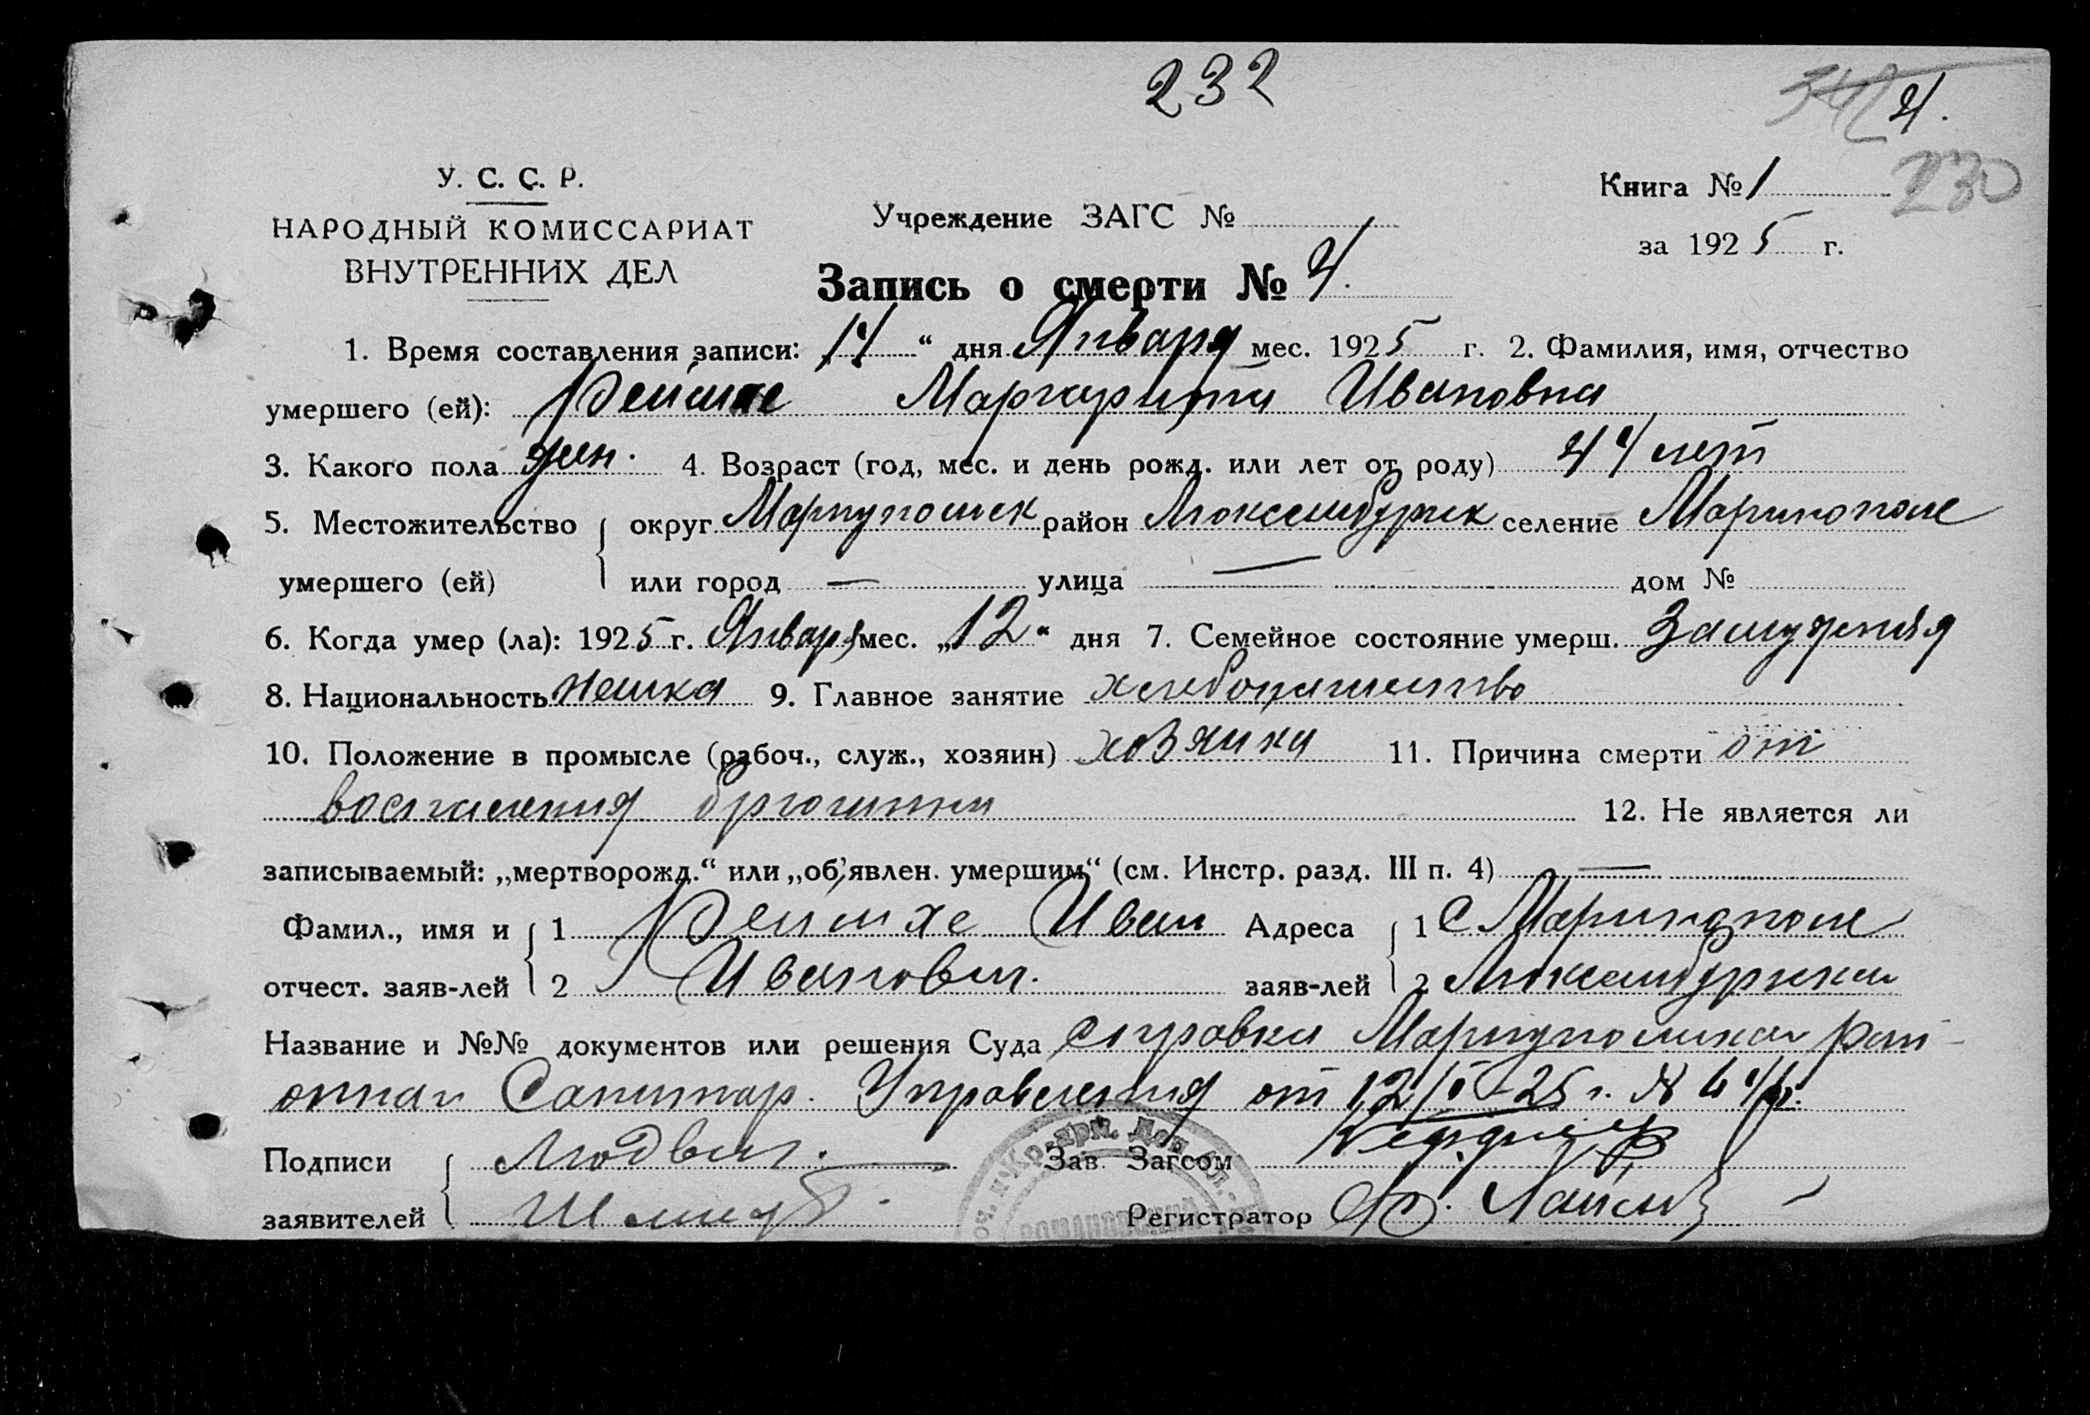 232
342 4.
230
У. С. С. Р.
НАРОДНЫЙ КОМИССАРИАТ
ВНУТРЕННИХ ДЕЛ
Учреждение ЗАГС №
Книга № 1
за 1925 г.
Запись о смерти № 4.
1. Время составления записи: 14 “ дня Января мес. 1925 г. 2. Фамилия, имя, отчество
умершего (ей): Реймхе Маргарита Ивановна
3. Какого пола жен. 4. Возраст (год, мес. и день рожд. или лет от роду) 44 лет
5. Местожительство округ Мариупольск район Люксембургск селение Маринополе
умершего (ей) или город — улица — дом №
6. Когда умер (ла): 1925 г. Января мес. „12“ дня 7. Семейное состояние умерш. Замужняя
8. Национальность немка 9. Главное занятие хлебопашество
10. Положение в промысле (рабоч., служ., хозяин) хозяйка 11. Причина смерти от
воспаления брюшины 12. Не является ли
записываемый: „мертворожд.“ или „об'явлен. умершим“ (см. Инстр. разд. III п. 4) —
Фамил., имя и 1 Реймхе Иван Адреса 1 с Маринополе
отчест. заяв-лей 2 Иванович. заяв-лей 2 Люксембургский
Название и №№ документов или решения Суда справка Мариупольской рай-
онной Санитар. Управления от 12/I-25 г. №
Подписи Людвиг. — Зав. Загсом
заявителей Шмидт. Регистратор